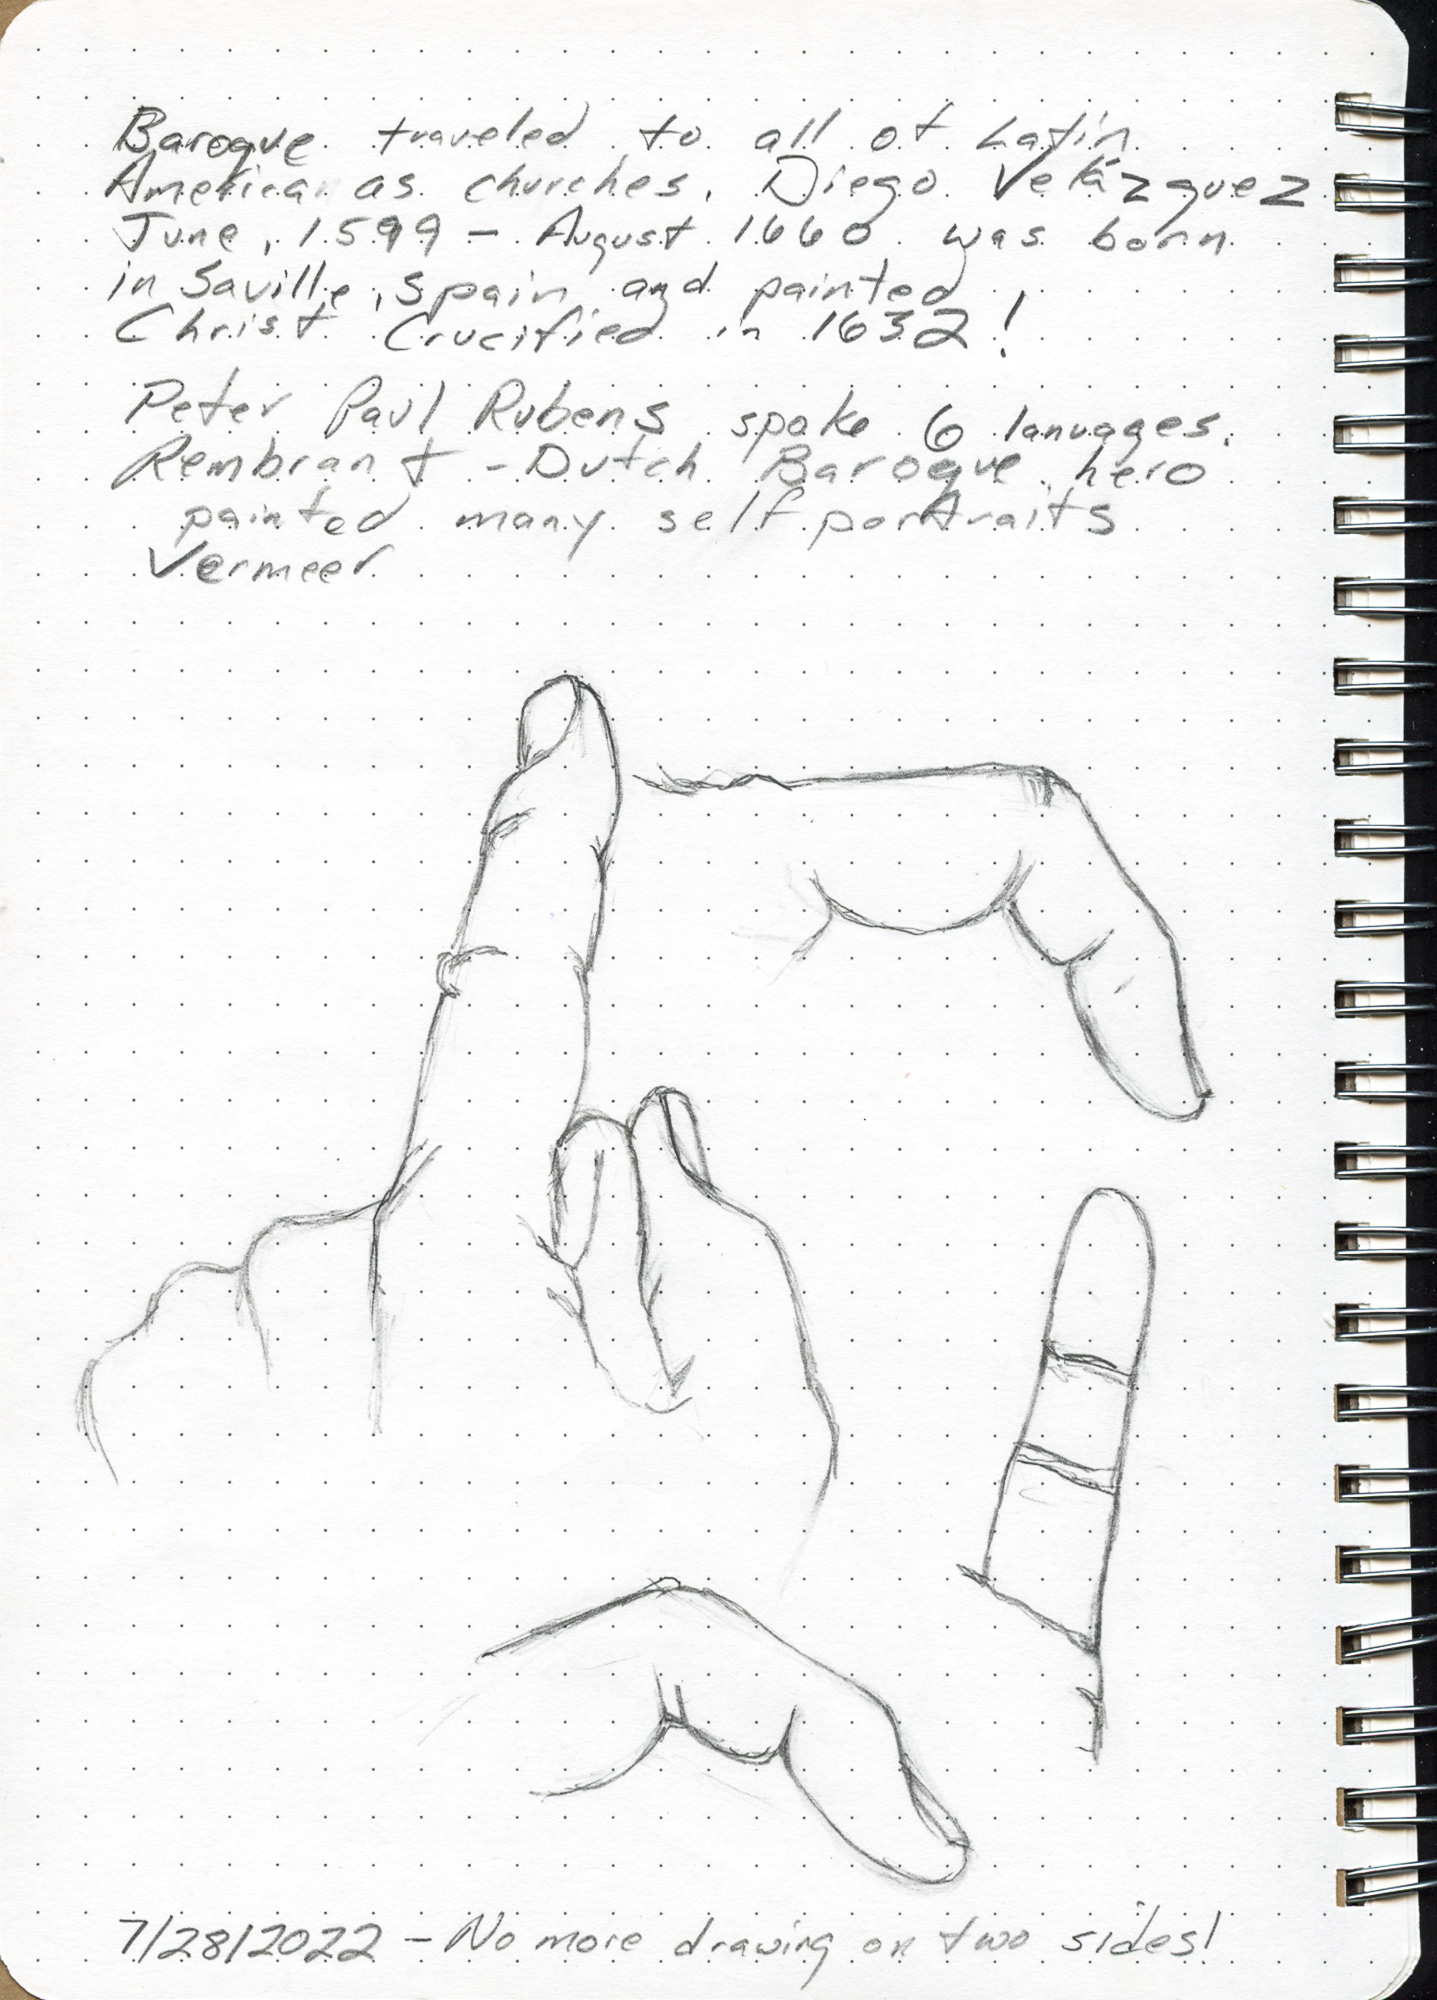 Baroque traveled to all of Latin
American as churches. Diego Velázquez
June, 1599 - August 1660 was born
in Saville, Spain and painted
Christ Crucified in 1632!
Peter Paul Rubens spoke 6 lanuages.
Rembrant - Dutch Baroque hero
painted many self portraits
Vermeer
7/28/2022 - No more drawing on two sides!